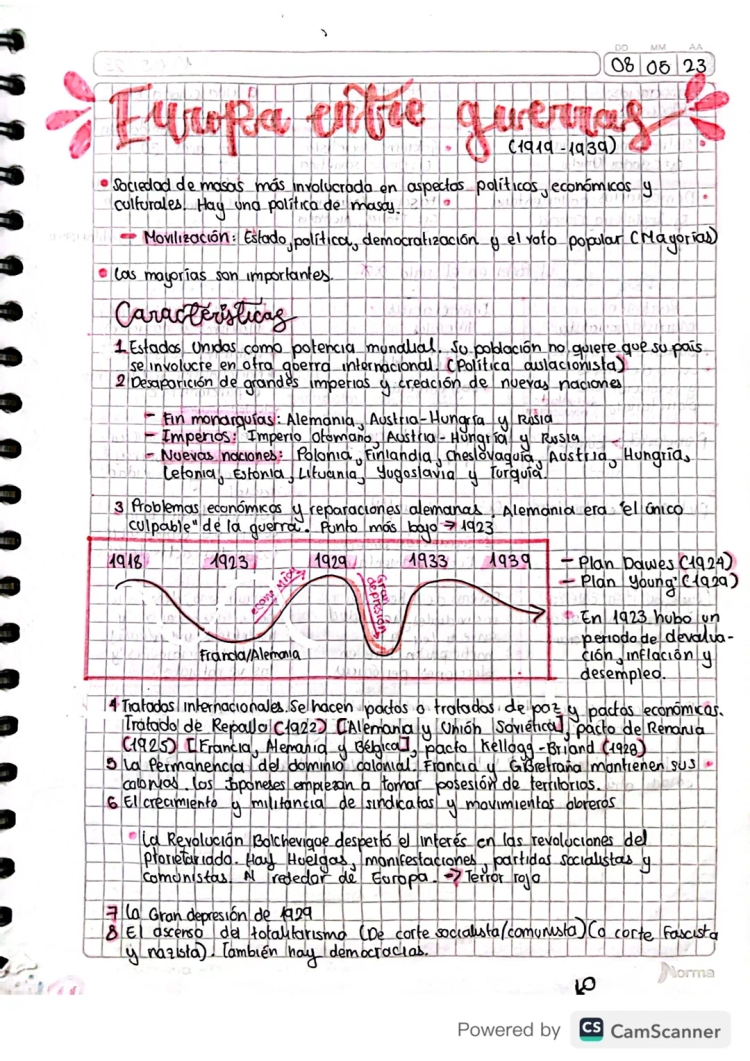 DD MM AA
08 05 23
Europa entre guerras
(1919-1939)
• Sociedad de masas más involucrada en aspectos políticos, económicos y
culturales. Hay una política de masas.
- Movilización: Estado, política, democratización y el voto popular (Mayorías)
• Las mayorías son importantes.
Características
1 Estados Unidos como potencia mundial. Su población no quiere que su país
se involucre en otra guerra internacional. (Política aislacionista)
2 Desaparición de grandes imperios y creación de nuevas naciones
- Fin monarquías: Alemania, Austria-Hungría y Rusia
- Imperios: Imperio otomano, Austria-Hungría y Rusia
- Nuevas naciones: Polonia, Finlandia, Cheslovaquia, Austria, Hungría,
Letonia, Estonia, Lituania, Yugoslavia y Turquía.
3 Problemas económicos y reparaciones alemanas. Alemania era "el único
culpable" de la guerra. Punto más bajo → 1923
1918 1923 1929 1933 1939
Gran depresión
Francia/Alemania
- Plan Dawes (1924)
- Plan Young (1929)
• En 1923 hubo un
periodo de devalua-
ción, inflación y
desempleo.
4 Tratados internacionales. Se hacen pactos o tratados de paz y pactos económicos.
Tratado de Repallo (1922) [Alemania y Unión Soviética], pacto de Renania
(1925) [Francia, Alemania y Bélgica], pacto Kellogg-Briand (1928)
5 La Permanencia del dominio colonial. Francia y G.Bretraña mantienen sus
colonias. Los Japoneses empiezan a tomar posesión de territorios.
6 El crecimiento y militancia de sindicatos y movimientos obreros
• La Revolución Bolchevique despertó el interés en las revoluciones del
plorietariado. Hay Huelgas, manifestaciones, partidos socialistas y
comunistas. Al rededor de Europa. → Terror rojo
7 La Gran depresión de 1929
8 El ascenso del totalitarismo (De corte socialista/comunista) (o corte Fascista
y nazista). También hay democracias.
Norma
Powered by CS CamScanner